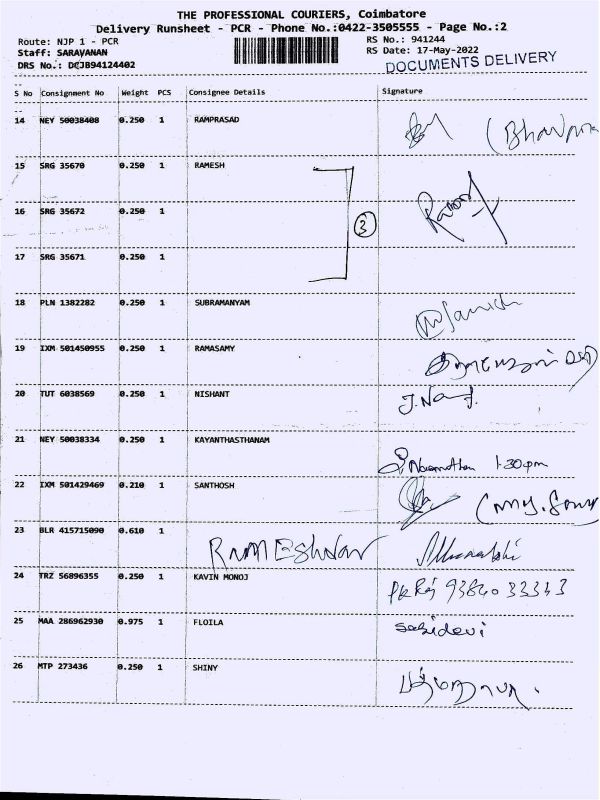 THE PROFESSIONAL COURIERS, Coimbatore
Delivery Runsheet - PCR - Phone No.:0422-3505555 - Page No.:2
Route: NJP 1 - PCR
RS No.: 941244
Staff: SARAVANAN
RS Date: 17-May-2022
DRS No.: DCJB94124402
DOCUMENTS DELIVERY
S No Consignment No Weight PCS Consignee Details Signature
14 NEY 50038408 0.250 1 RAMPRASAD
15 SRG 35670 0.250 1 RAMESH
16 SRG 35672 0.250 1
3
17 SRG 35671 0.250 1
18 PLN 1382282 0.250 1 SUBRAMANYAM
19 IXM 501450955 0.250 1 RAMASAMY
20 TUT 6038569 0.250 1 NISHANT
21 NEY 50038334 0.250 1 KAYANTHASTHANAM
1.30pm
22 IXM 501429469 0.210 1 SANTHOSH
23 BLR 415715090 0.610 1 RAMEshwar
24 TRZ 56896355 0.250 1 KAVIN MONOJ
25 MAA 286962930 0.975 1 FLOILA sasidevi
26 MTP 273436 0.250 1 SHINY